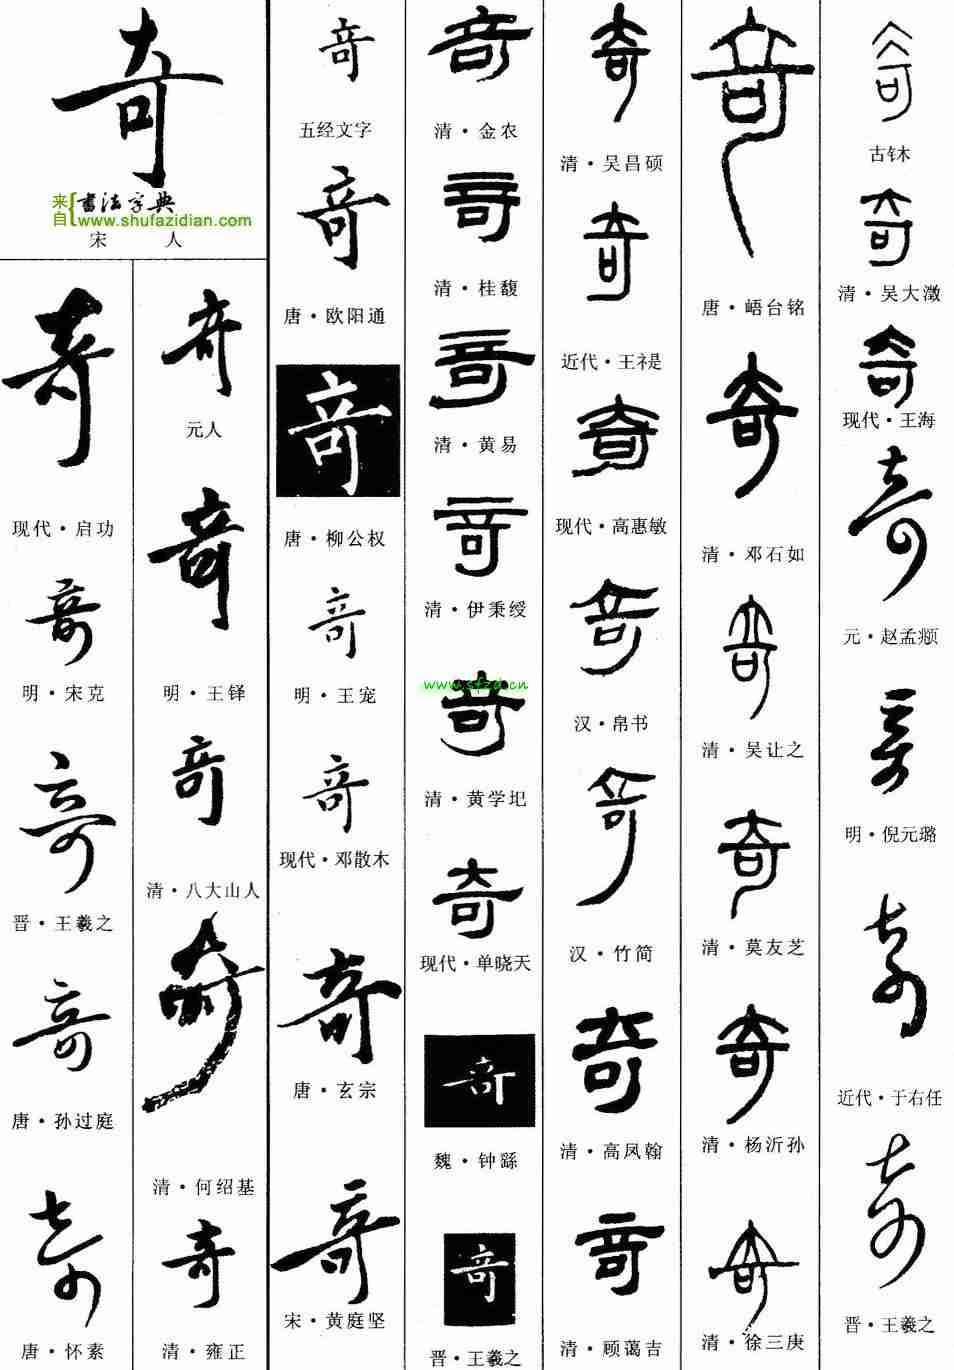 奇
来自{书法字典
www.shufazidian.com
宋 人
奇
现代・启功
奇
明・宋克
奇
晋・王羲之
奇
唐・孙过庭
奇
唐・怀素
奇
元人
奇
明・王铎
奇
清・八大山人
奇
清・何绍基
奇
清・雍正
奇
五经文字
奇
唐・欧阳通
奇
唐・柳公权
奇
明・王宠
奇
现代・邓散木
奇
唐・玄宗
奇
宋・黄庭坚
奇
清・金农
奇
清・桂馥
奇
清・黄易
奇
清・伊秉绶
www.sfzd.cn
奇
清・黄学圯
奇
现代・单晓天
奇
魏・钟繇
奇
晋・王羲之
奇
清・吴昌硕
奇
近代・王禔
奇
现代・高惠敏
奇
汉・帛书
奇
汉・竹简
奇
清・高凤翰
奇
清・顾蔼吉
奇
唐・峿台铭
奇
清・邓石如
奇
清・吴让之
奇
清・莫友芝
奇
清・杨沂孙
奇
清・徐三庚
奇
古钵木
奇
清・吴大澂
奇
现代・王海
奇
元・赵孟頫
奇
明・倪元璐
奇
近代・于右任
奇
晋・王羲之